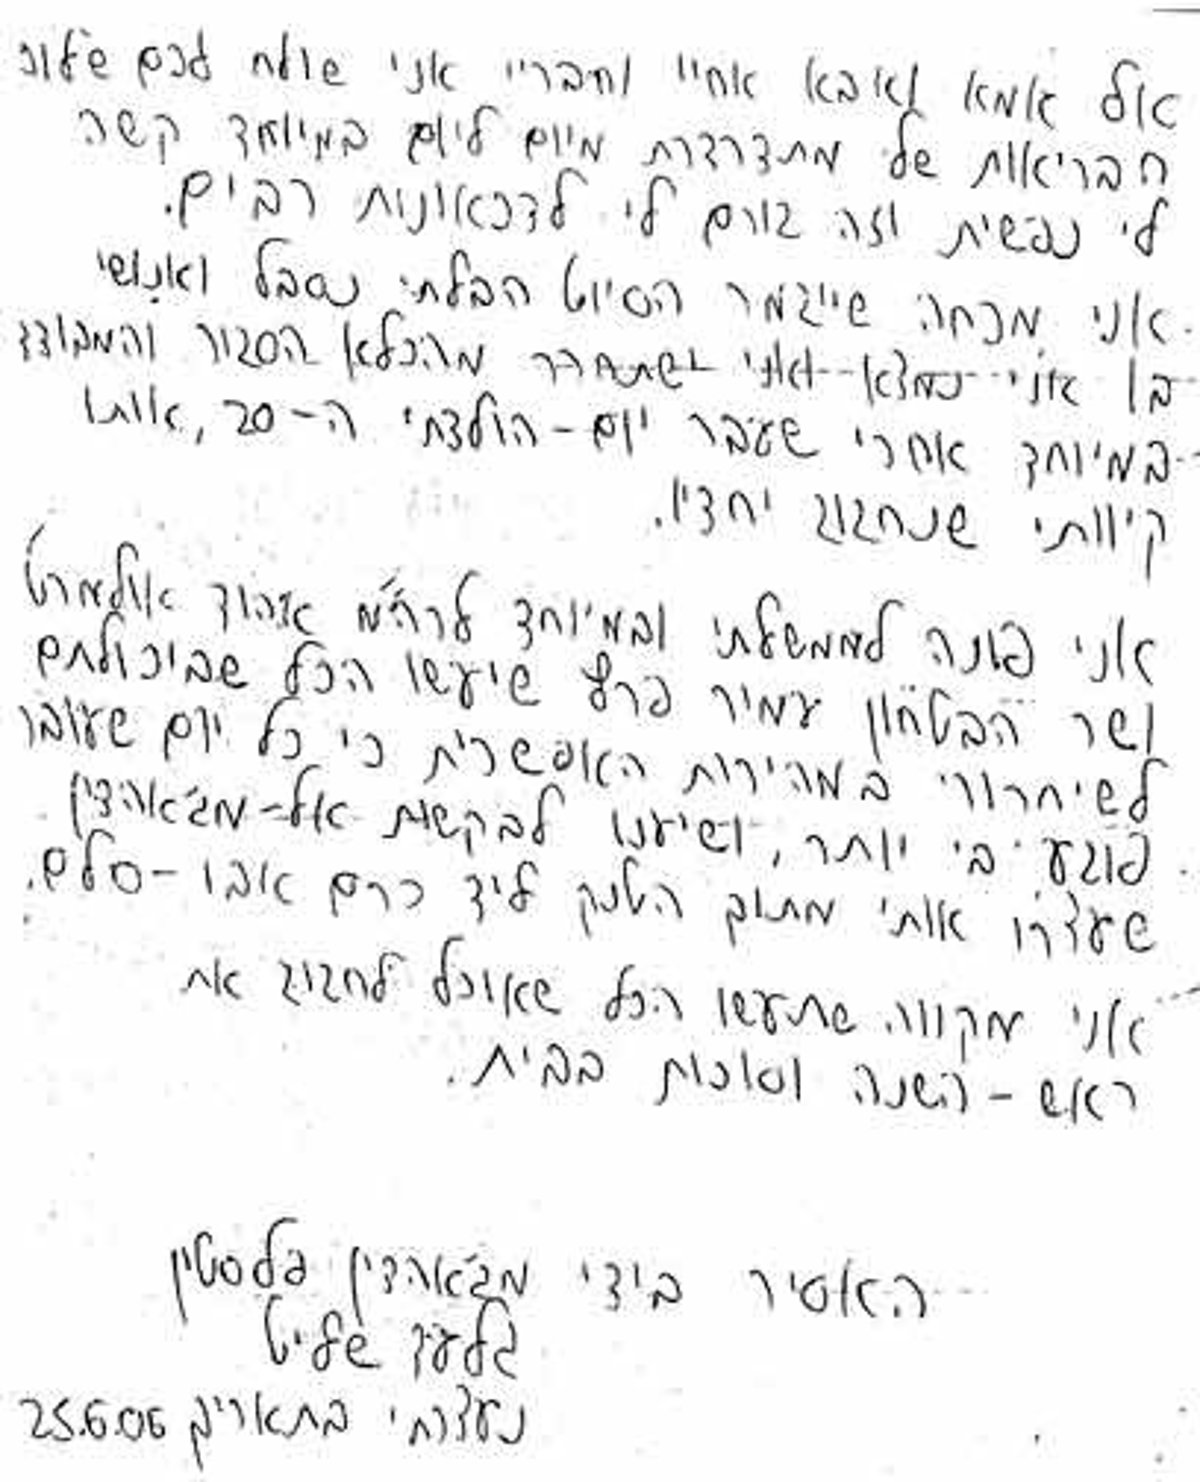 אל אמא ואבא אחיי וחבריי אני שולח לכם שלום
הבריאות שלי מתדרדרת מיום ליום במיוחד קשה
לי נפשית וזה גורם לי לדכאונות רבים.
אני מכחה שייגמר הסיוט הבלתי נסבל ואנושי
בו אני נמצא ואני אשתחרר מהכלא הסגור והמבודד
במיוחד אחרי שעבר יום-הולדתי ה-20, אותו
קיוותי שנחגוג יחדיו.
אני פונה לממשלתי ובמיוחד לרה"מ אהוד אולמרט
ושר הבטחון עמיר פרץ שיעשו הכל שביכולתם
לשיחרורי במהירות האפשרית כי כל יום שעובר
פוגע בי יותר, ושיענו לבקשות אל-מג'אהדין
שעצרו אותי מתוך הטנק ליד כרם אבו-סלם.
אני מקווה שתעשו הכל שאוכל לחגוג את
ראש-השנה וסוכות בבית.
האסיר בידי מג'אהדין פלסטין
גלעד שליט
נעצרתי בתאריך 25.6.06